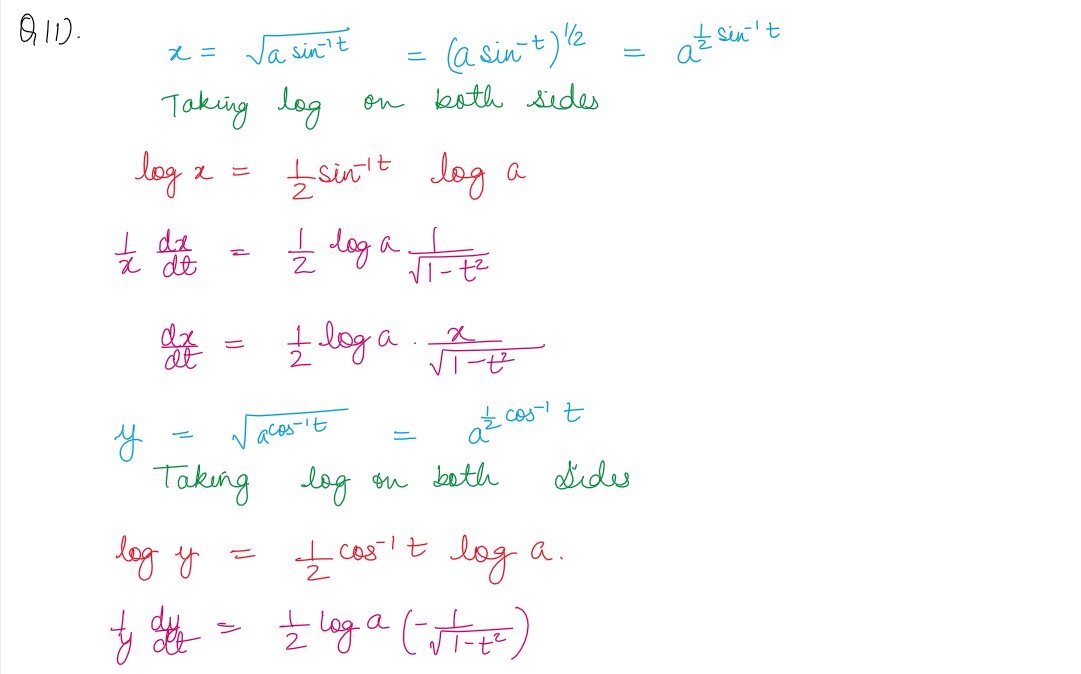 Q11).
x = √(a sin⁻¹t) = (a sin⁻t)^1/2 = a^(1/2 sin⁻¹ t)
Taking log on both sides
log x = 1/2 sin⁻¹t log a
1/x dx/dt = 1/2 log a 1/√(1-t²)
dx/dt = 1/2 log a . x/√(1-t²)
y = √(a^(cos⁻¹t)) = a^(1/2 cos⁻¹ t)
Taking log on both Sides
log y = 1/2 cos⁻¹ t log a.
1/y dy/dt = 1/2 log a (-1/√(1-t²))